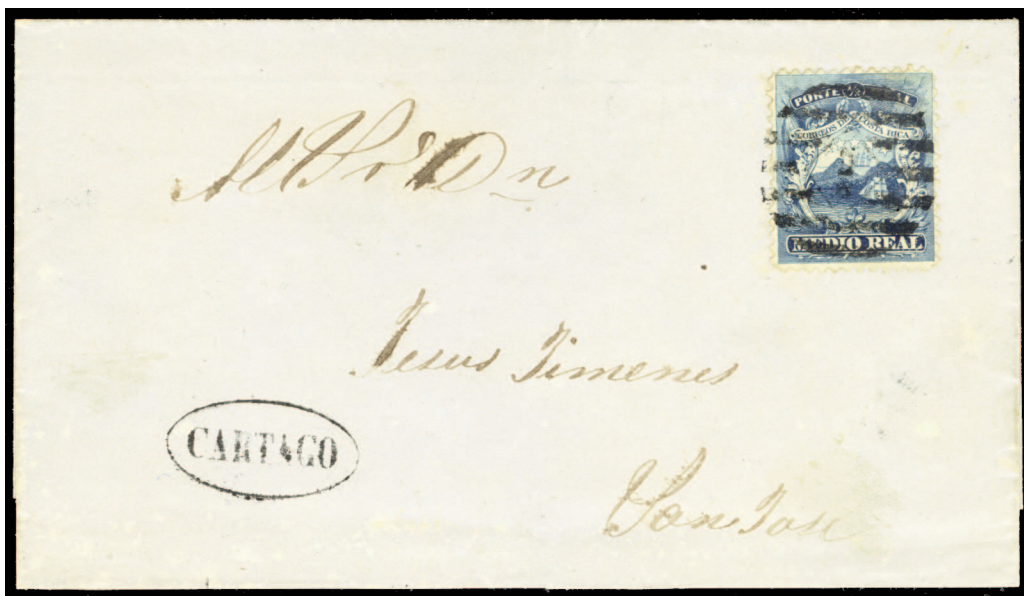 PORTE
CORREOS DE COSTA RICA
MEDIO REAL
Al Sor Dn
Jesus Jimenes
CARTAGO
San José